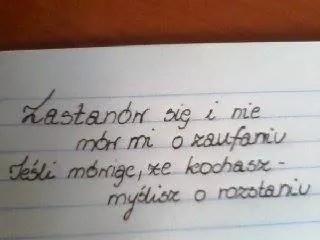 Zastanów się i nie
mów mi o zaufaniu
Jeśli mówiąc, że kochasz -
myślisz o rozstaniu